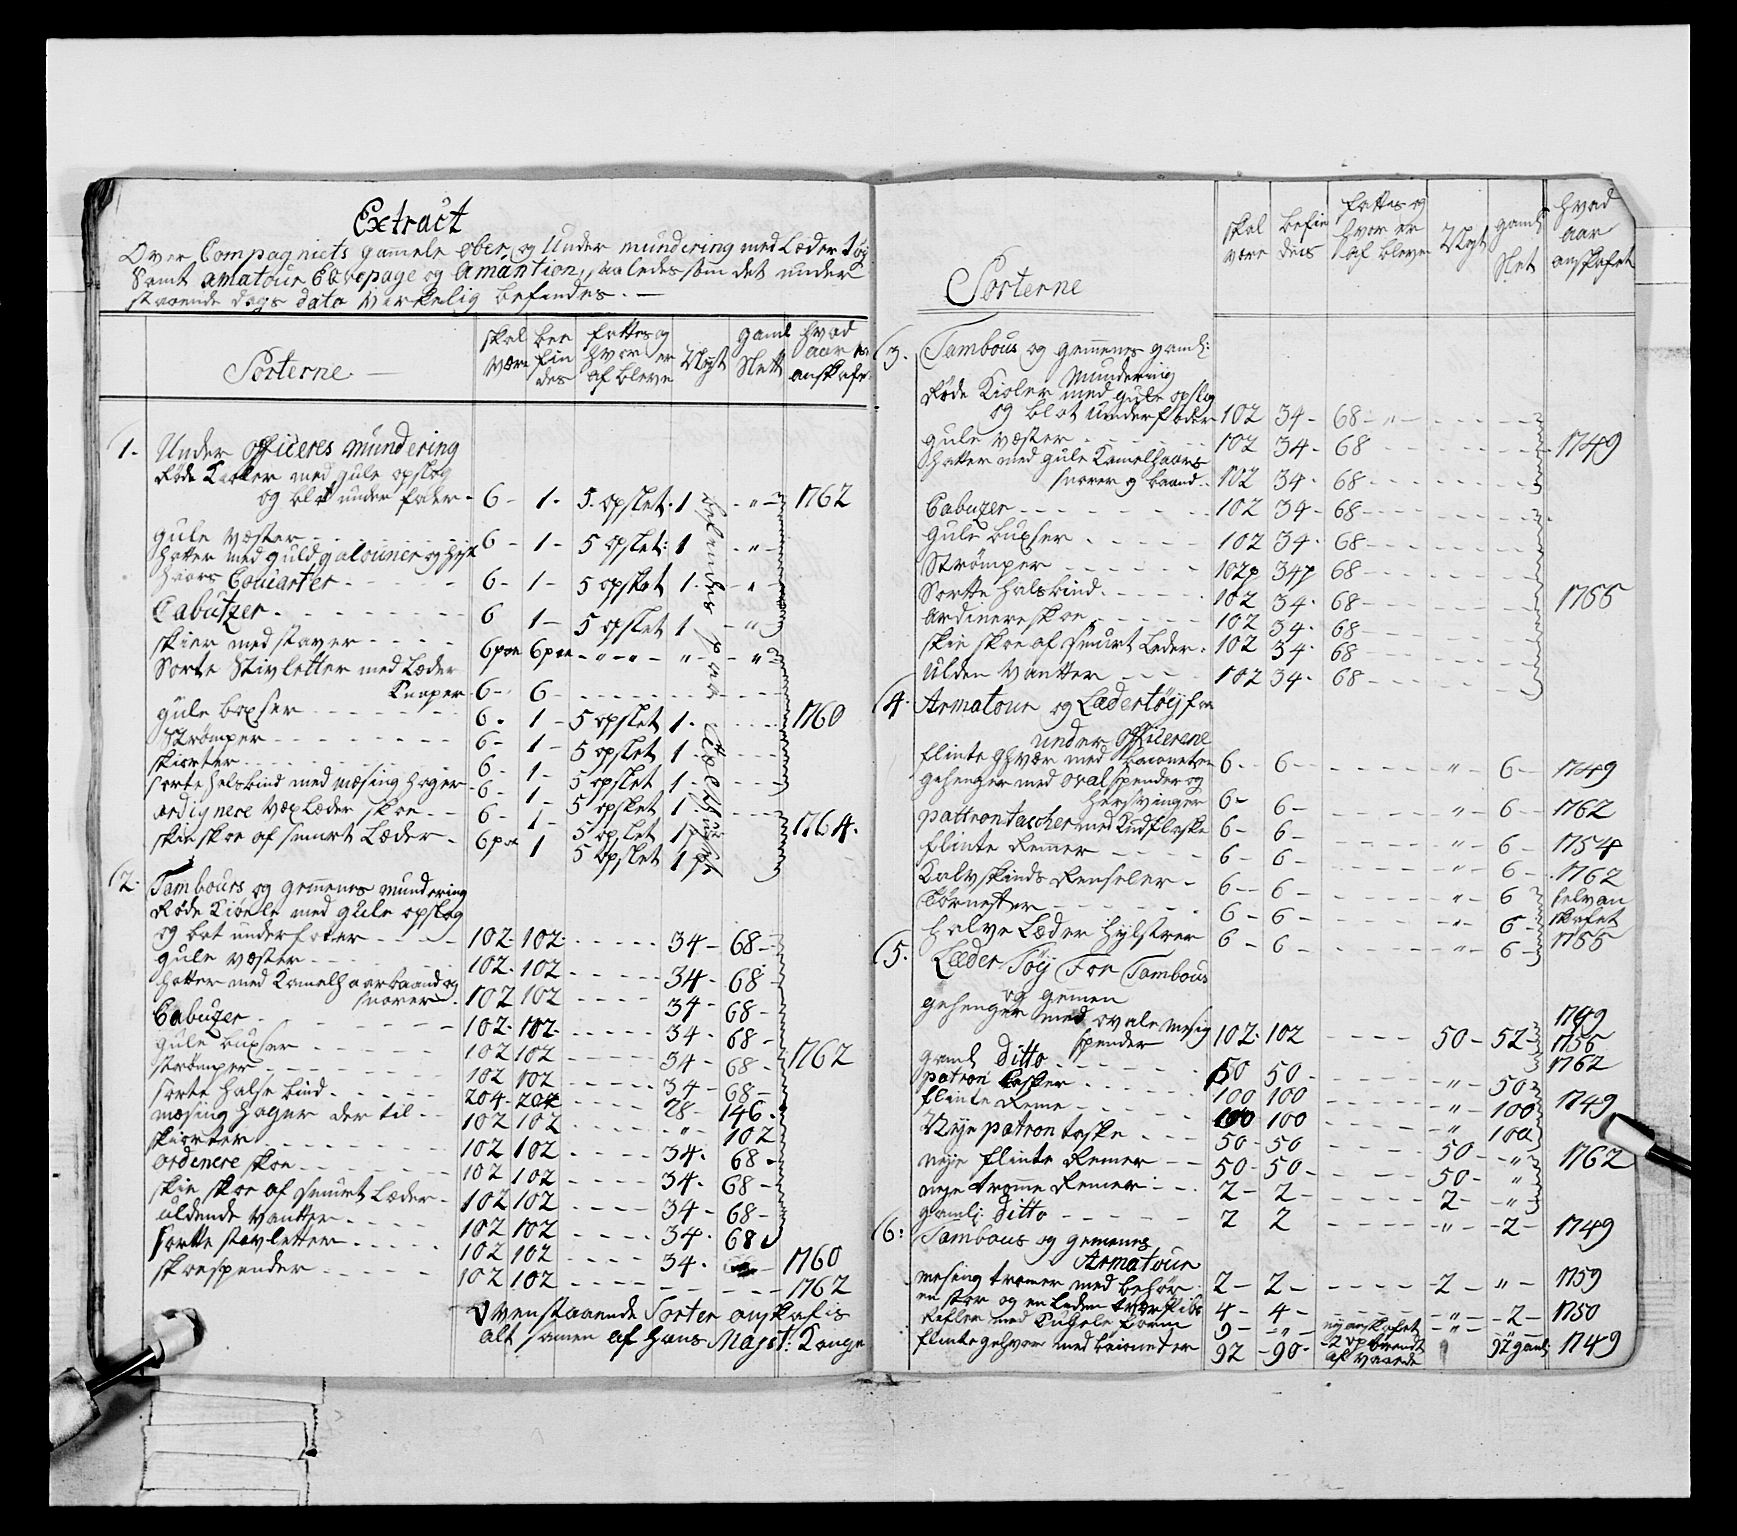 Extract
Over Compagniets gamele ober og Under mundering med Læder tøy
Samt amatour Eqvipage og Amantion, saaledes som det under
staaende dags dato virkelig befindes. —
Sorterne — skal være beefindes fattes og hvor er af bleve Nyt gaml Slett hvad aar er anskafet
1. Under officeres mundering
Røde Kioler med gule opslag
og blot under foder - 6 - 1 - 5 opslet. 1 - " - 1762
gule væster 6 - 1 - 5 opslet: 1 - " -
hatter med guld galouner og hest
haars Couarter - 6 - 1 - 5 opslet 1 - " -
Cabutzer - 6 1 - 5 opslet 1 - " -
skier med staver - 6 par 6 par - " - " - " - " -
Sorte Stivletter med Læder
Knaper - 6 - 6 -
gule boxser 6 - 1 - 5 opslet 1 - 1760
Strømper - 6 - 1 - 5 opslet 1 -
skiorter 6 - 1 - 5 opslet 1 -
sorte halsbind med mæsing hager - 6 - 1 - 5 opslet 1 -
ordignere væxlæder skoe - 6 - 1 - 5 opslet 1 p 1764.
skie skoe af smurt Læder - 6 par 1 5 opslet 1 pr
befindes paa
2. Tambours og gemenes mundering
Røde Kiole med gule opslag
og bot underfoder 102 - 102 - 34 - 68 -
gule væster 102 - 102 - 34 - 68 -
hatter med Kamelhaarbaand og
snorer 102 102 - 34 - 68 -
Cabuzer 102 - 102 - 34 - 68 -
gule buxser 102 102 - 34 - 68 - 1762
strømper 102 102 - 34 - 68 -
sorte halse bind 204 - 204 28 - 146 -
mæsing hager der til 102 102 - " - 102
skiorter 102 102 - 34 - 68 -
ordenere skoe 102 102 - 34 - 68 -
skie skoe af smurt Læder - 102 102 - 34 - 68 -
uldende vantter 102 102 - 34 - 68
sortte stevletter 102 102 - 34 - 1760
skoespender 102 102 - 1762
Ovenstaaende Sorter anskafis
alt samen af hans Majst: Konge
Sorterne skal være befindes fattes og hvor er af bleve Nyt gaml Slet hvad aar anskafet
3. Tambous og gemenes gaml:
Mundering
Røde Kioler med gule opslag
og blot underfoder 102 34 - 68 - " -
gule væster 102 34 - 68 - 1749
hatter med gule Kamelhaars
snorer og baand 102 34 - 68 -
Cabuzer 102 34 - 68 -
gule buxser 102 34 - 68 -
Strømper 102p 34p 68 -
Sortte halsbind 102 34 - 68 - 1755
ardinere skoe 102 34 - 68 -
skie skoe af smurt Leder 102 34 - 68 -
Ulden vantter 102 34 - 68 -
4. Armatour og Lædertøy for
under officerene
flinte ghvær med baionetter 6 - 6 - " - 6 - 1749
gehenger med oval spender og
hersvinger 6 - 6 - " - 6 - 1762
pattrontascher med Kudflaske 6 - 6 - " - 6 - 1754
flinte Remer 6 - 6 - " - 6 - 1762
Kalvskinds Renseler - 6 - 6 - " - 6 selv an
Tørnester 6 - 6 - " - 6 - skafet
halve Læder hylstrer 6 - 6 - " - 6 - 1755
5. Læder Tøy For Tambous
og gemen
gehenger med ovale mesig
spender 102 - 102 50 - 52 - 1749
gaml ditto 50 50 - " - 50 1756 1762
patron tasker 100 100 - " - 100 1749
flinte Reme 100 100 " 100
Nye patron taske 50 - 50 50 - " -
neye flinte Remer 50 - 50 - 50 - " 1762
neye tromme Remer 2 - 2 - 2 - " -
gamle ditto 2 2 " - 2 - 1749
6: Tambous og gemenes
Armatour
mesing tromer med behør 2 - 2 - 2 - " - 1759
en stor og en leden tværpibe 4 - 4 - " - 2 - 1750
Rifler med Kugele form 9 - " - ny anskafet - " - "
flinte gehvær med baioneder 92 - 90 - 2 opbrendt af vaade 92 gaml 1749